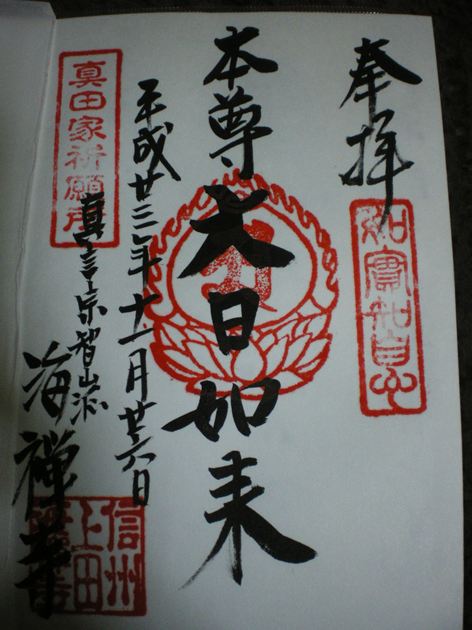 奉拝
如實知自心
本尊大日如来
平成廿三年十一月廿六日
真田家祈願所
真言宗智山派
海禅寺
信州
上田